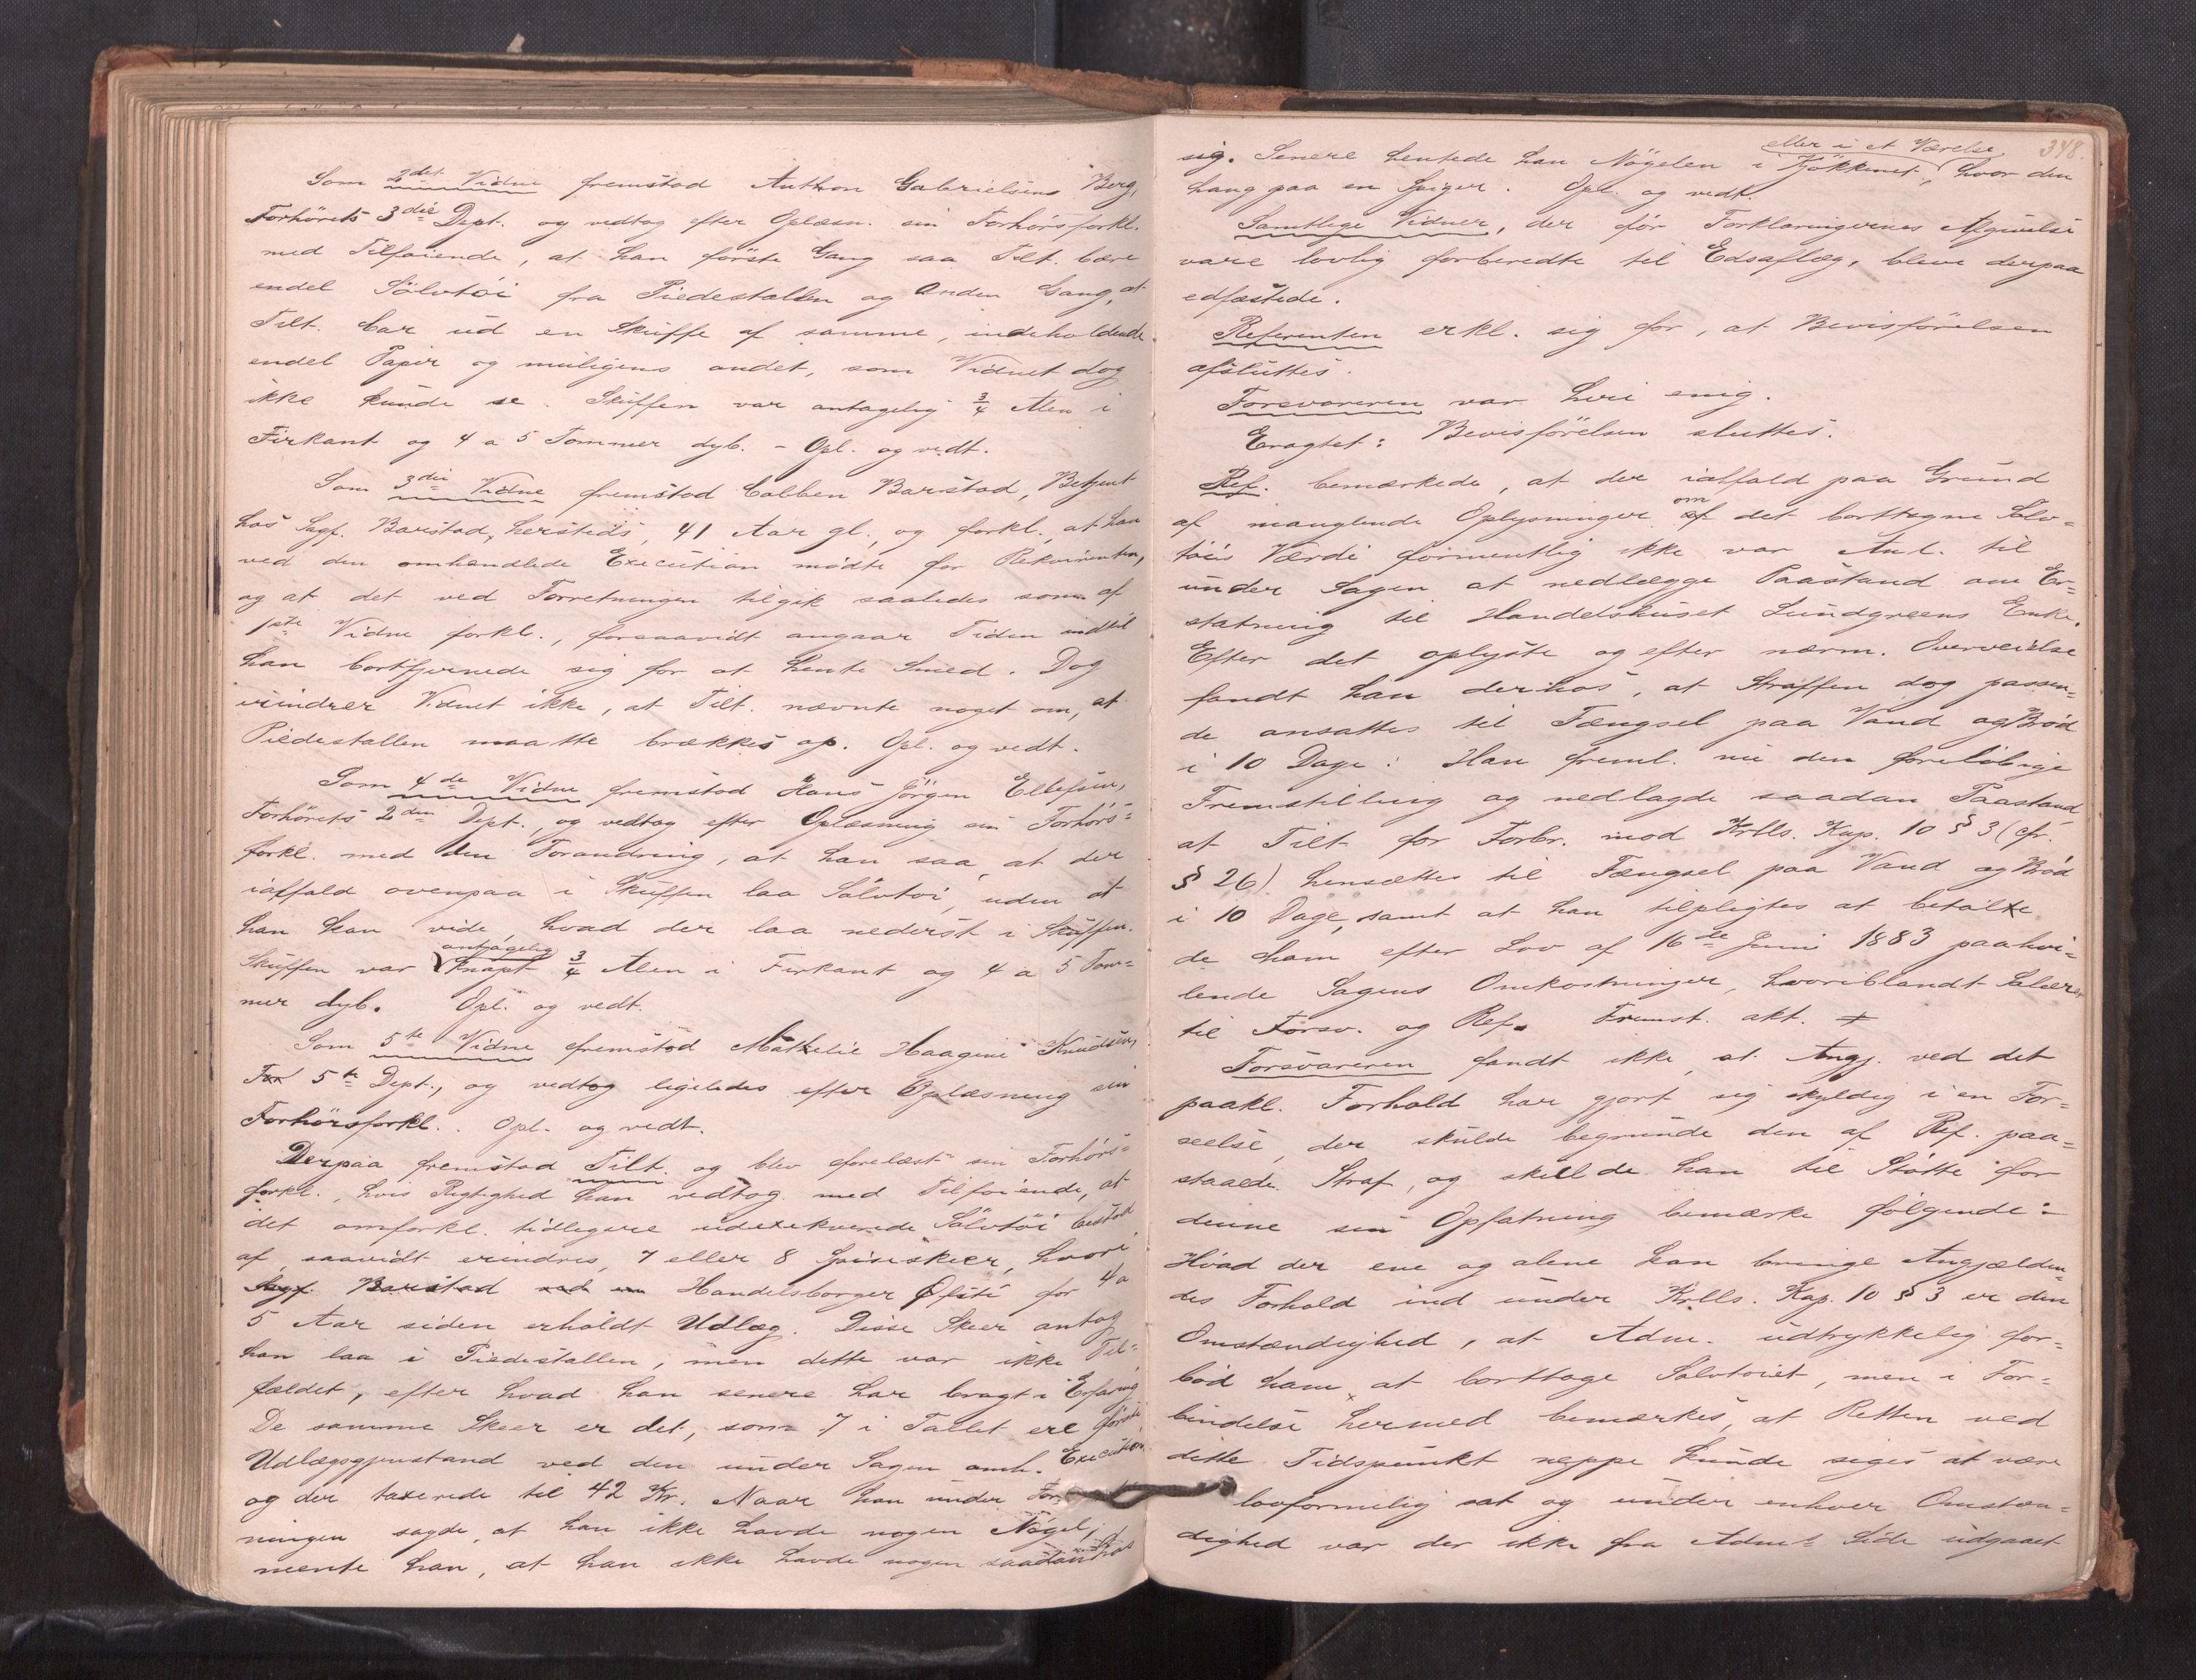 Som 2det Vidne fremstod Anthon Gabrielsens Berg,
Forhörets 3die Dept. og vedtog efter Oplæsn. sin Forhörsforkl.
med Tilføiende, at han förste Gang saa Tilt. bære
endel Sölvtöi fra Piedestallen og Anden Gang, at
Tilt. bar ud en Skuffe af samme, indeholdende
endel Papir og muligens andet, som Vidnet dog
ikke kunde se. Skuffen var antagelig 3/4 Alen i
Firkant og 4 a 5 Tommer dyb. - Opl. og vedt.
Som 3die Vidne fremstod Colben Barstad, Betjent
hos Sagf. Barstad, hersteds, 41 Aar gl., og forkl., at han
ved den omhandlede Execution mödte for Rekvirenten,
og at det ved Forretningen tilgik saaledes som af
1ste Vidne forkl., forsaavidt angaar Tiden indtil
han bortfjernede sig for at hente Smed. Dog
erindrer Vidnet ikke, at Tilt. nævnte noget om, at
Piedestallen maatte brækkes op. Opl. og vedt.
Som 4de Vidne fremstod Hans Jörgen Ellefsen,
Forhörets 2den Dept., og vedtog efter Oplæsning sin Forhörs=
forkl. med den Forandring, at han saa, at der
iaffald ovenpaa i Skuffen laa Sölvtöi, uden at
han kan vide, hvad der laa nederst i Skuffen.
Skuffen var antagelig knapt 3/4 Alen i Firkant og 4 a 5 Tom=
mer dyb. Opl. og vedt.
Som 5te Vidne fremstod Mathelie Haagine Knudsen,
For 5te Dept., og vedtog ligeledes efter Oplæsning sin
Forhörsforkl.. Opl. og vedt.
Derpaa fremstod Tilt. og blev forelæst sin Forhörs=
forkl., hvis Rigtighed han vedtog med Tilföiende, at
det omforkl. tidligere udexekverede Sölvtöi bestod
af, saavidt erindres, 7 eller 8 Spiseskeer, hvori
Sagf. Barstad Handelsborger for 4 a
5 Aar siden erholdt Udlæg. Disse Skeer antog
han laa i Piedestallen, men dette var ikke Til=
fældet, efter hvad han senere har bragt i Erfaring
De samme Skeer er det, som 7 i Tallet ere förste
Udlægsgjenstand ved den under Sagen omh. Execution
og der taxerede til 42 Kr. Naar han under
ningen sagde, at han ikke havde nogen Nögel,
mente han, at han ikke havde nogen saadan hos
348.
sig. Senere hentede han Nögelen i Kjökkenet, eller i et Værelse, hvor den
hang paa en Spiger. Opl. og vedt.
Samtlige Vidner, der för Forklaringernes Afgivelse
vare lovlig forberedte til Edsaflæg, bleve derpaa
edfæstede.
Referenten erkl. sig for, at Bevisförelsen
afsluttes.
Forsvareren var heri enig.
Eragtet: Bevisförelsen sluttes.
Ref. bemærkede, at der ialfald paa Grund
af manglende Oplysninger om af det borttagne Sölv=
töis Værdi formentlig ikke var Anl. til
under Sagen at nedlægge Paastand om Er=
statning til Handelshuset Lundgreens Enke.
Efter det oplyste og efter nærm. Overveielse
fandt han derhos, at Straffen dog passen=
de ansattes til Fængsel paa Vand og Bröd
i 10 Dage: Han freml. nu den forelöbige
Fremstilling og nedlagde saadan Paastand,
at Tilt. for Forbr. mod Krlls. Kap. 10 § 3 (cfr.
§ 26) hensættes til Fængsel paa Vand og Bröd
i 10 Dage, samt at han tilpligtes at betale
de ham efter Lov af 16de Juni 1883 paahvi=
lende Sagens Omkostninger, hvoriblandt Salærer
til Forsv. og Ref. Fremst. akt. +
Forsvareren fandt ikke, at Angj. ved det
paakl. Forhold har gjort sig skyldig i en For=
seelse, der skulde begrunde den af Ref. paa=
staaede Straf, og skulde han til Stötte for
denne sin Opfatning bemærke fölgende:
Hvad der ene og alene kan bringe Angjælden=
des Forhold ind under Krlls. Kap. 10 § 3 er den
Omstændighed, at Adm. udtrykkelig for=
böd ham at borttage Sölvtöiet, men i For=
bindelse hermed bemærkes, at Retten ved
dette Tidspunkt neppe kunde siges at være
lovformelig sat og under enhver Omstæn=
dighed var der ikke fra Adm.s Side udgaaet